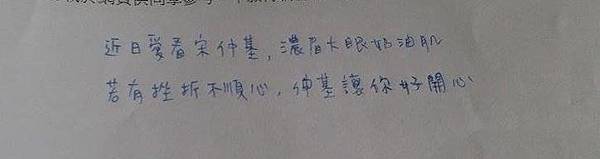 近日愛看宋仲基,濃眉大眼奶油肌
若有挫折不順心,仲基讓你好開心